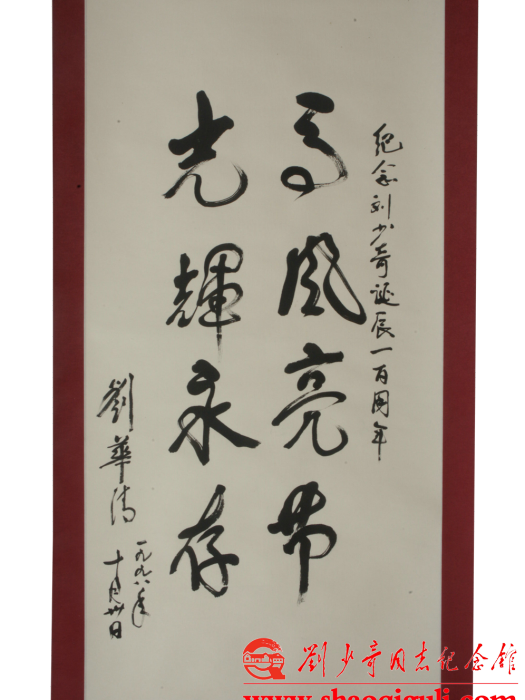 纪念刘少奇诞辰一百周年
高风亮节
光輝永存
劉華清
一九九八年
十月卅日
劉少奇同志纪念館
www.shaoqiguli.com